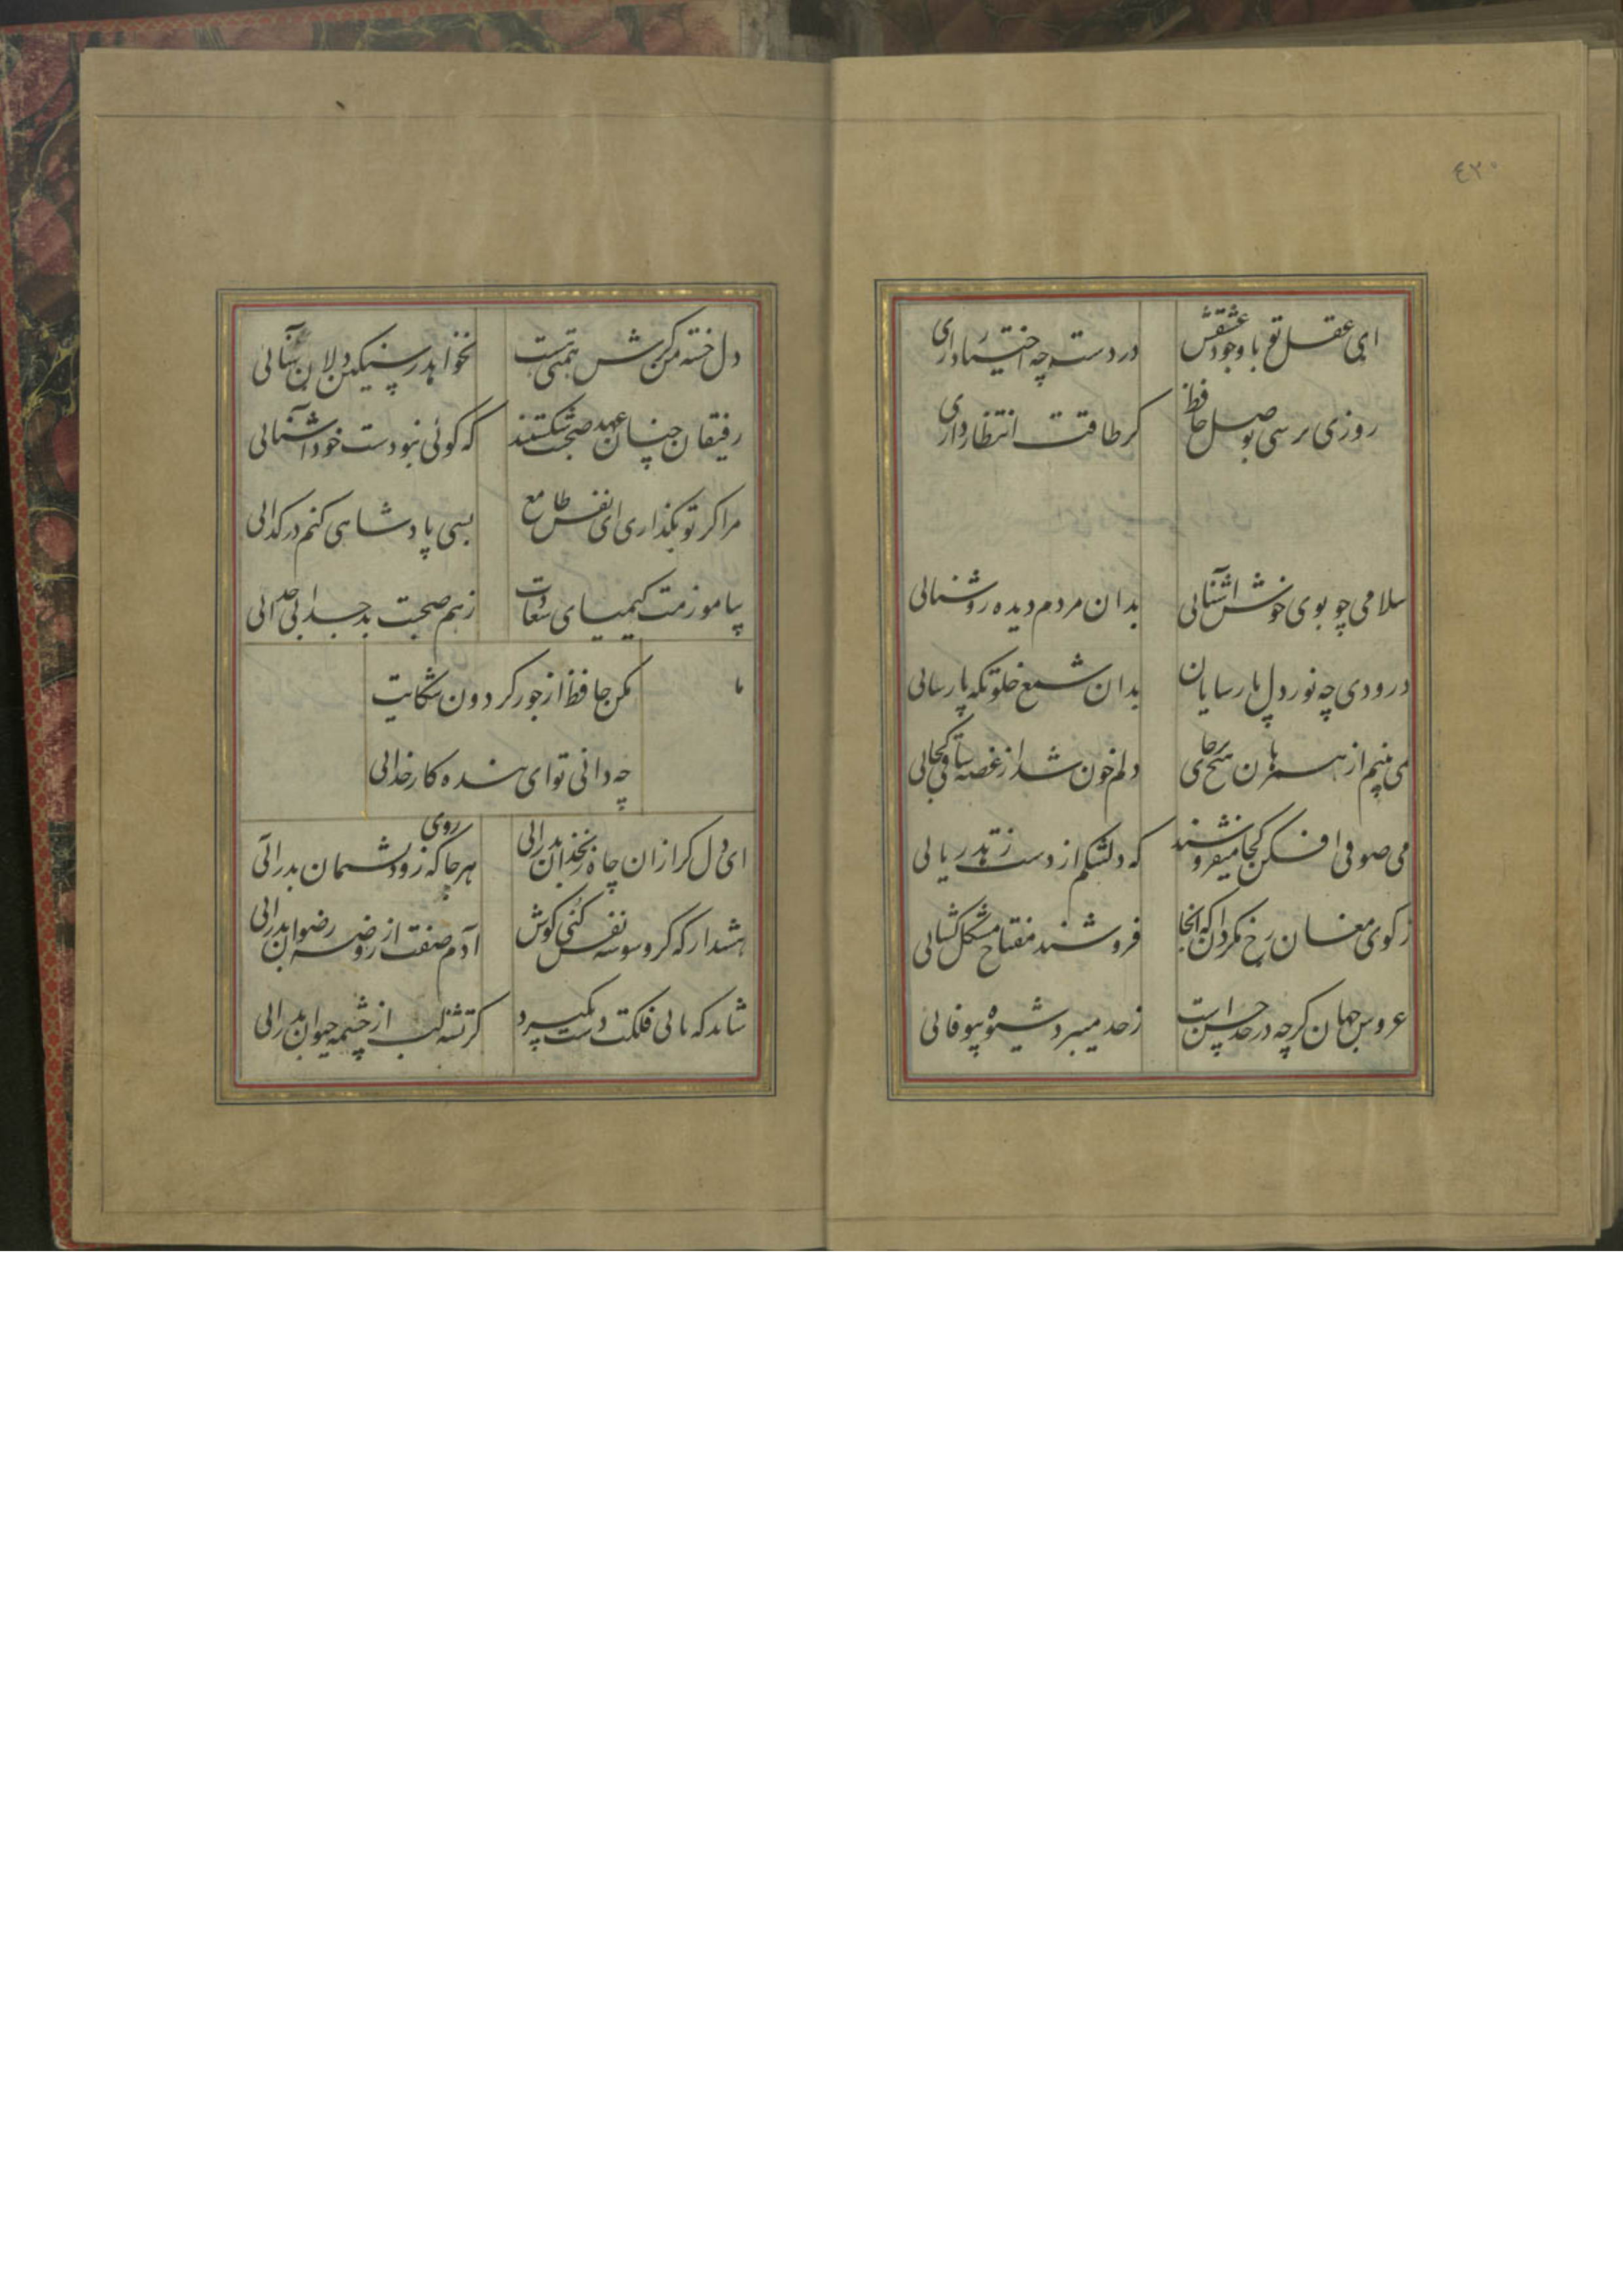 ٤٢٠
ای عقل تو با وجود عشقش در دست چه اختیار داری
روزی برسی بوصل حافظ کر طاقت انتظار داری
سلامی چو بوی خوش آشنائی بدان مردم دیده روشنائی
درودی چه نور دل پارسایان بدان شمع خلوتکه پارسائی
نمی بینم از همرهان هیچ بر جای دلم خون شد از غصه ساقی کجائی
می صوفی افکن کجا میفروشند که دلتنکم از دست زهد ریائی
ز کوی مغان رخ مکردان که آنجا فروشند مفتاح مشکل کشائی
عروس جهان کرچه در حد حسن است ز حد میبرد شیوه بیوفائی
دل خسته من کرش همتی هست نخواهد ز سنکین دلان مومیائی
رفیقان چنان عهد صحبت شکستند که کوئی نبودست خود آشنائی
مرا کر تو بکذاری ای نفس طامع بسی پادشاهی کنم در کدائی
بیاموزمت کیمیای سعادت ز هم صحبت بد جدائی جدائی
مکن حافظ از جور کردون شکایت
چه دانی تو ای بنده کار خدائی
ای دل کر ازان چاه زنخدان بدرائی هر جا که روی زود پشیمان بدرائی
هشدار که کر وسوسه نفس کنی کوش آدم صفت از روضه رضوان بدرائی
شاید که بابی فلکت دست نکیرد کر تشنه لب از چشمه حیوان بدرائی